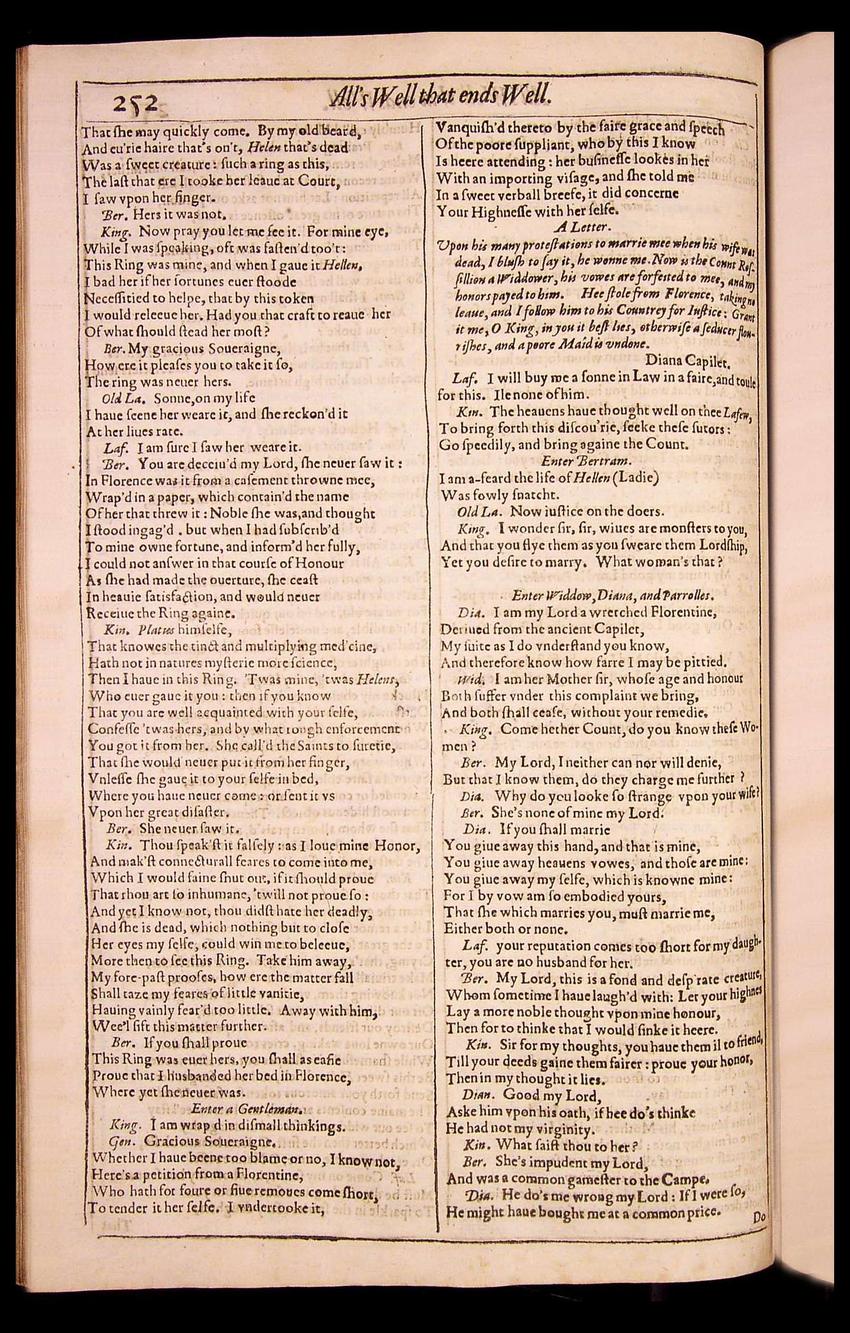 252
All's Well that ends Well.
That ſhe may quickly come. By my old beard,
And eu'rie haire that's on't, Helen that's dead
Was a ſweet creature: ſuch a ring as this,
The laſt that ere I tooke her leaue at Court,
I ſaw vpon her finger.
Ber. Hers it was not.
King. Now pray you let me ſee it. For mine eye,
While I was ſpeaking, oft was faſten'd too't:
This Ring was mine, and when I gaue it Hellen,
I bad her if her fortunes euer ſtoode
Neceſſitied to helpe, that by this token
I would releeue her. Had you that craft to reaue her
Of what ſhould ſtead her moſt?
Ber. My gracious Soueraigne,
How ere it pleaſes you to take it ſo,
The ring was neuer hers.
Old La. Sonne, on my life
I haue ſeene her weare it, and ſhe reckon'd it
At her liues rate.
Laf. I am ſure I ſaw her weare it.
Ber. You are deceiu'd my Lord, ſhe neuer ſaw it:
In Florence was it from a caſement throwne mee,
Wrap'd in a paper, which contain'd the name
Of her that threw it: Noble ſhe was, and thought
I ſtood ingag'd, but when I had ſubſcrib'd
To mine owne fortune, and inform'd her fully,
I could not anſwer in that courſe of Honour
As ſhe had made the ouerture, ſhe ceaſt
In heauie ſatisfaction, and would neuer
Receiue the Ring againe.
Kin. Platus himſelfe,
That knowes the tinct and multiplying med'cine,
Hath not in natures myſterie more ſcience,
Then I haue in this Ring. 'Twas mine, 'twas Helens,
Who euer gaue it you: then if you know
That you are well acquainted with your ſelfe,
Confeſſe 'twas hers, and by what rough enforcement
You got it from her. She call'd the Saints to ſuretie,
That ſhe would neuer put it from her finger,
Vnleſſe ſhe gaue it to your ſelfe in bed,
Where you haue neuer come: or ſent it vs
Vpon her great diſaſter.
Ber. She neuer ſaw it.
Kin. Thou ſpeak'ſt it falſely: as I loue mine Honor,
And mak'ſt connecturall feares to come into me,
Which I would faine ſhut out, if it ſhould proue
That thou art ſo inhumane, 'twill not proue ſo:
And yet I know not, thou didſt hate her deadly,
And ſhe is dead, which nothing but to cloſe
Her eyes my ſelfe, could win me to beleeue,
More then to ſee this Ring. Take him away,
My fore-paſt proofes, how ere the matter fall
Shall taze my feares of little vanitie,
Hauing vainly fear'd too little. Away with him,
Wee'l ſift this matter further.
Ber. If you ſhall proue
This Ring was euer hers, you ſhall as eaſie
Proue that I husbanded her bed in Florence,
Where yet ſhe neuer was.
Enter a Gentleman.
King. I am wrap'd in diſmall thinkings.
Gen. Gracious Soueraigne.
Whether I haue beene too blame or no, I know not,
Here's a petition from a Florentine,
Who hath for foure or fiue remoues come ſhort,
To tender it her ſelfe. I vndertooke it,
Vanquiſh'd thereto by the faire grace and ſpeech
Of the poore ſuppliant, who by this I know
Is heere attending: her buſineſſe lookes in her
With an importing viſage, and ſhe told me
In a ſweet verball breefe, it did concerne
Your Highneſſe with her ſelfe.
A Letter.
Vpon his many proteſtations to marrie mee when his wife was
dead, I bluſh to ſay it, he wonne me. Now is the Count Roſ-
ſillion a Widdower, his vowes are forfeited to mee, and my
honors payed to him. Hee ſtole from Florence, taking no
leaue, and I follow him to his Countrey for Iuſtice: Grant
it me, O King, in you it beſt lies, otherwiſe a ſeducer flou-
riſhes, and a poore Maid is vndone.
Diana Capilet.
Laf. I will buy me a ſonne in Law in a faire, and toule
for this. Ile none of him.
Kin. The heauens haue thought well on thee Lafew,
To bring forth this diſcou'rie, ſeeke theſe ſutors:
Go ſpeedily, and bring againe the Count.
Enter Bertram.
I am a-feard the life of Hellen (Ladie)
Was fowly ſnatcht.
Old La. Now iuſtice on the doers.
King. I wonder ſir, ſir, wiues are monſters to you,
And that you flye them as you ſweare them Lordſhip,
Yet you deſire to marry. What woman's that?
Enter Widdow, Diana, and Parrolles.
Dia. I am my Lord a wretched Florentine,
Deriued from the ancient Capilet,
My ſuite as I do vnderſtand you know,
And therefore know how farre I may be pittied.
Wid. I am her Mother ſir, whoſe age and honour
Both ſuffer vnder this complaint we bring,
And both ſhall ceaſe, without your remedie.
King. Come hether Count, do you know theſe Wo-
men?
Ber. My Lord, I neither can nor will denie,
But that I know them, do they charge me further?
Dia. Why do you looke ſo ſtrange vpon your wife?
Ber. She's none of mine my Lord.
Dia. If you ſhall marrie
You giue away this hand, and that is mine,
You giue away heauens vowes, and thoſe are mine:
You giue away my ſelfe, which is knowne mine:
For I by vow am ſo embodied yours,
That ſhe which marries you, muſt marrie me,
Either both or none.
Laf. your reputation comes too ſhort for my daugh-
ter, you are no husband for her.
Ber. My Lord, this is a fond and deſp'rate creature,
Whom ſometime I haue laugh'd with: Let your highnes
Lay a more noble thought vpon mine honour,
Then for to thinke that I would ſinke it heere.
Kin. Sir for my thoughts, you haue them il to friend,
Till your deeds gaine them fairer: proue your honor,
Then in my thought it lies.
Dian. Good my Lord,
Aske him vpon his oath, if hee do's thinke
He had not my virginity.
Kin. What ſaiſt thou to her?
Ber. She's impudent my Lord,
And was a common gameſter to the Campe.
Dia. He do's me wrong my Lord: If I were ſo,
He might haue bought me at a common price.
Do